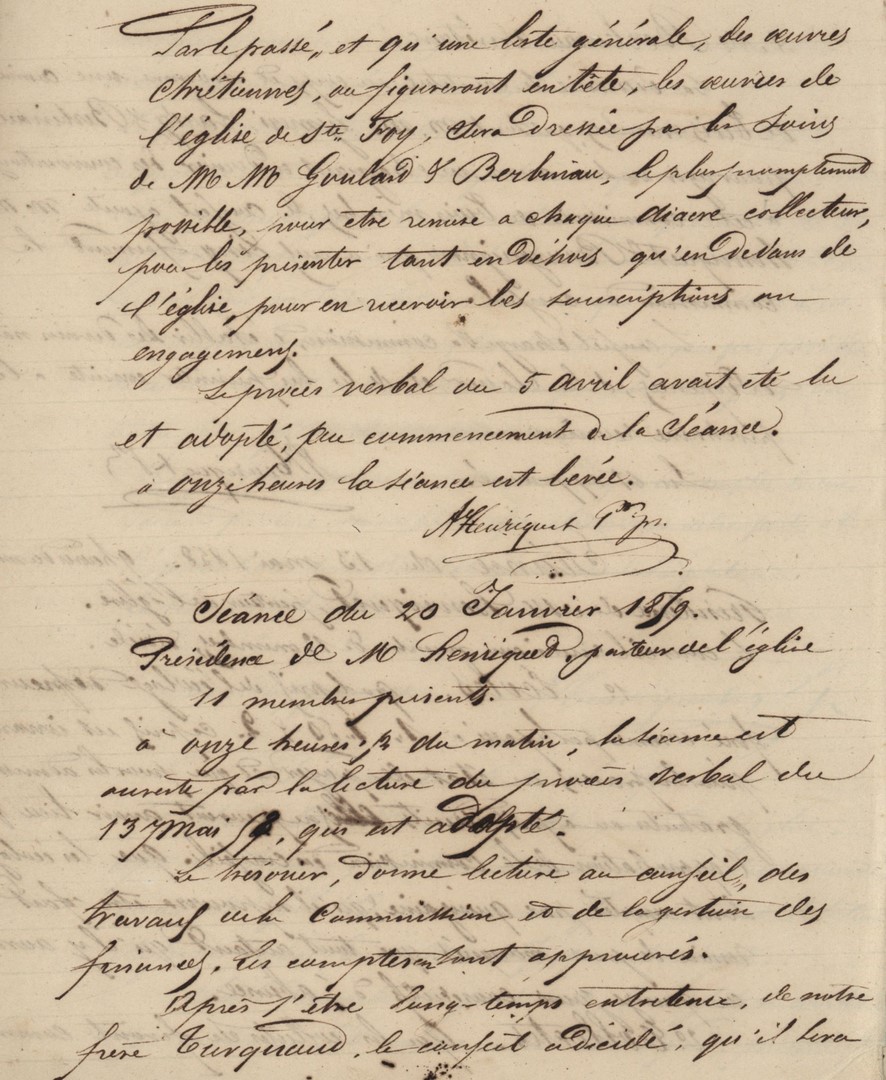 Par le passé, et qu'une liste générale, des œuvres
chrétiennes, ou figureront en tête, les œuvres de
l'église de Ste Foy, sera dressée par les soins
de MM Goulard & Berbiniau, le plus promptement
possible, pour etre remise a chaque diacre collecteur,
pour les présenter tant en déhors qu'en dedans de
l'église, pour en recevoir les souscriptions ou
engagemens.
Le procès verbal du 5 avril avait été lu
et adopté, au commencement de la Séance.
à onze heures la séance est levée.
AHenriquet Pr ps.
Séance du 20 Janvier 1859.
Présidence de M Henriquet, pasteur de l'église
11 membres présents.
à onze heures ½ du matin, la séance est
ouverte par la lecture du procès verbal du
13 mai 58, qui est adopté.
Le trésorier, donne lecture au conseil, des
travaux de la Commission et de la gestion des
finances. Les comptes en sont approuvés.
Après s'être long-temps entretenu, de notre
frère Turquand, le conseil a décidé, qu'il sera